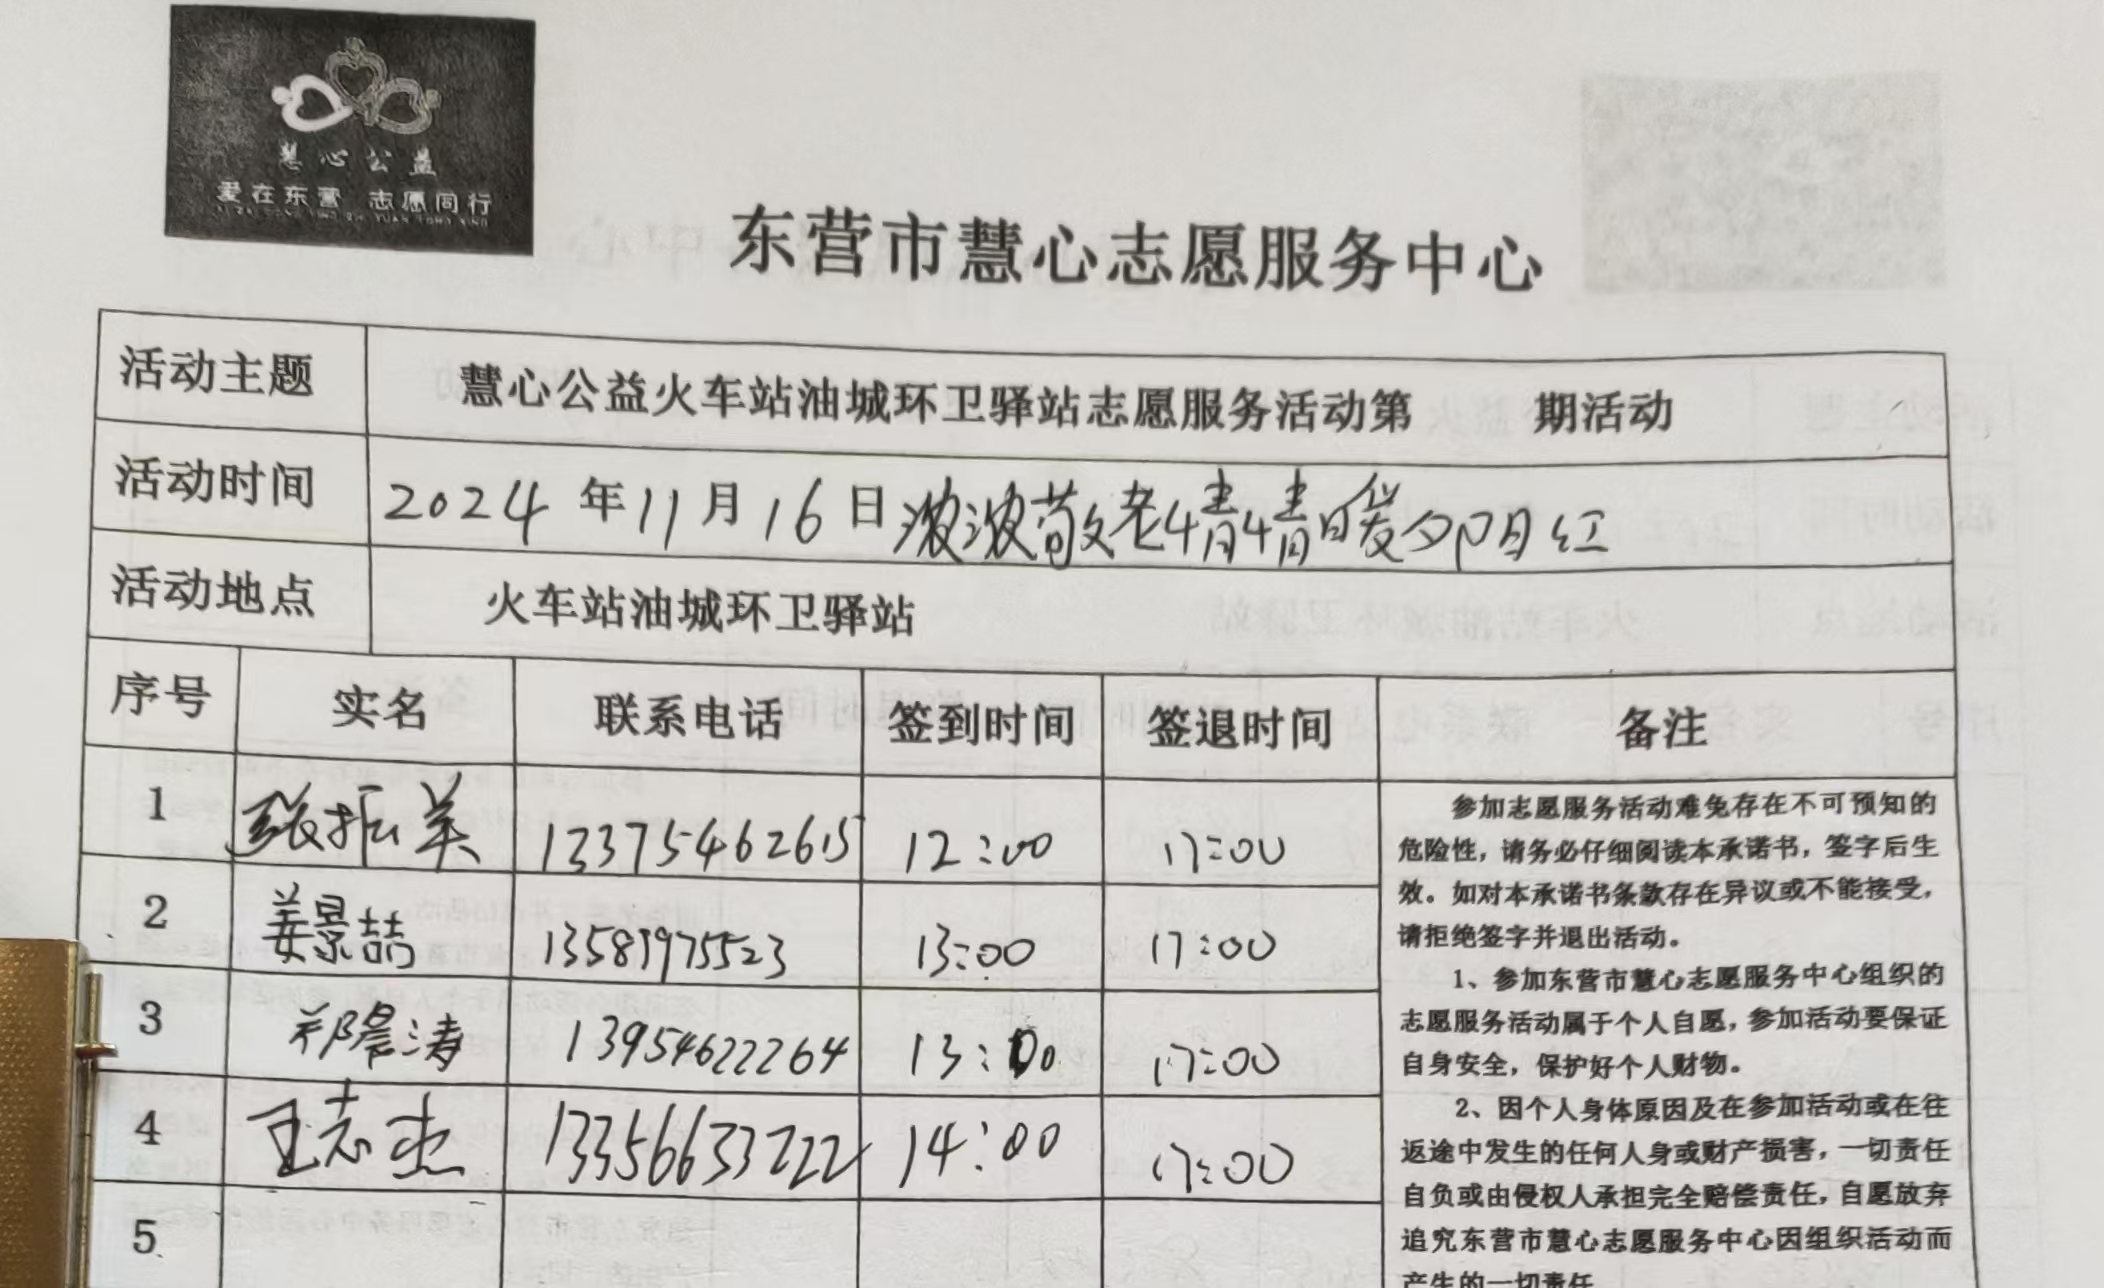 慧心公益
爱在东营 志愿同行
AI ZAI DONG YING ZHI YUAN TONG XING
东营市慧心志愿服务中心
活动主题 慧心公益火车站油城环卫驿站志愿服务活动第 期活动
活动时间 2024年11月16日浓浓敬老情情暖夕阳红
活动地点 火车站油城环卫驿站
序号 实名 联系电话 签到时间 签退时间 备注
1 张振美 13375462615 12:00 17:00
2 姜景喆 13589975523 13:00 17:00
3 郑晨涛 13954622264 13:00 17:00
4 王志杰 13356633222 14:00 17:00
5
参加志愿服务活动难免存在不可预知的
危险性，请务必仔细阅读本承诺书，签字后生
效。如对本承诺书条款存在异议或不能接受，
请拒绝签字并退出活动。
1、参加东营市慧心志愿服务中心组织的
志愿服务活动属于个人自愿，参加活动要保证
自身安全，保护好个人财物。
2、因个人身体原因及在参加活动或在往
返途中发生的任何人身或财产损害，一切责任
自负或由侵权人承担完全赔偿责任，自愿放弃
追究东营市慧心志愿服务中心因组织活动而
产生的一切责任